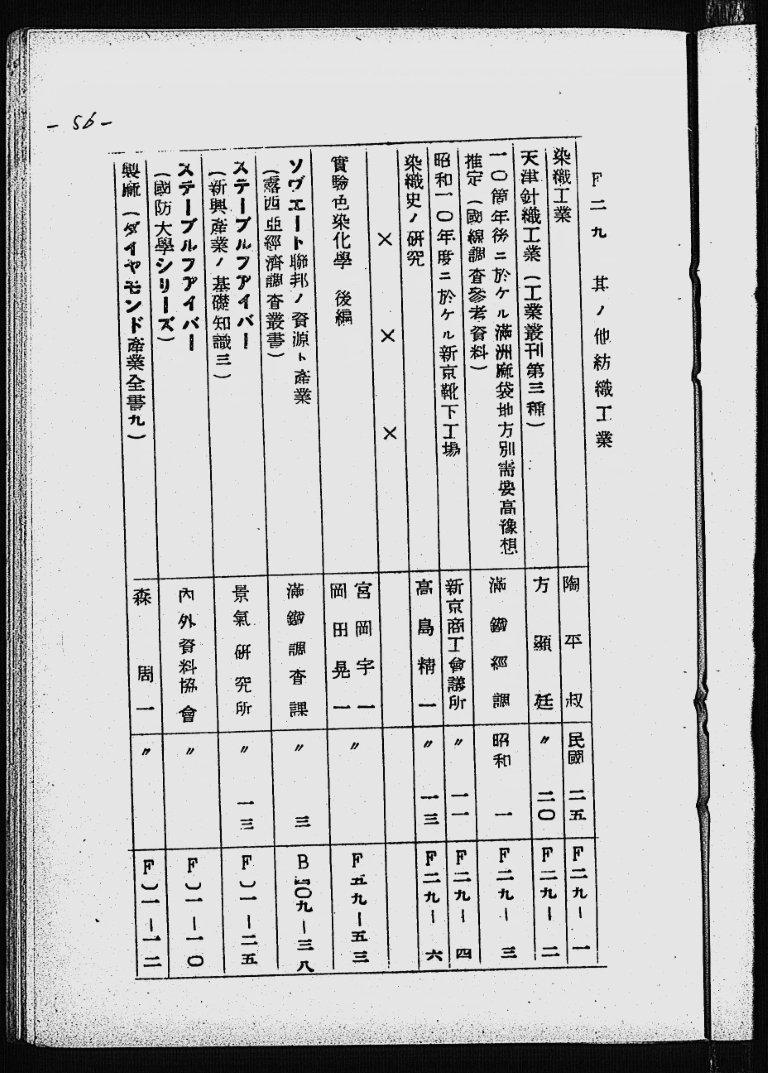 - 56 -
F二九 其ノ他紡織工業
染織工業 陶平叔 民國二五 F二九—一
天津針織工業(工業叢刊第三種) 方顯廷 〃二〇 F二九—二
一〇箇年後ニ於ケル滿洲麻袋地方別需要高豫想
推定(國線調査參考資料) 滿鐵經調 昭和一 F二九—三
昭和一〇年度ニ於ケル新京靴下工場 新京商工會議所 〃一一 F二九—四
染織史ノ研究 高島精一 〃一三 F二九—六
× × ×
實驗色染化學 後編 宮岡宇一 岡田晃一 〃 F五九—五三
ソヴエート聯邦ノ資源ト產業
(露西亞經濟調査叢書) 滿鐵調査課 〃三 B四〇九—三八
ステーブルフアイバー
(新興產業ノ基礎知識三) 景氣研究所 〃一三 F〇一—二五
ステーブルフアイバー
(國防大學シリーズ) 內外資料協會 〃 F〇一—一〇
製麻(ダイヤモンド產業全書九) 森周一 〃 F〇一—一二